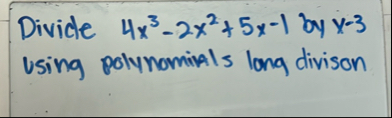 Divide 4x³-2x²+5x-1 by x-3
using polynominals long divison